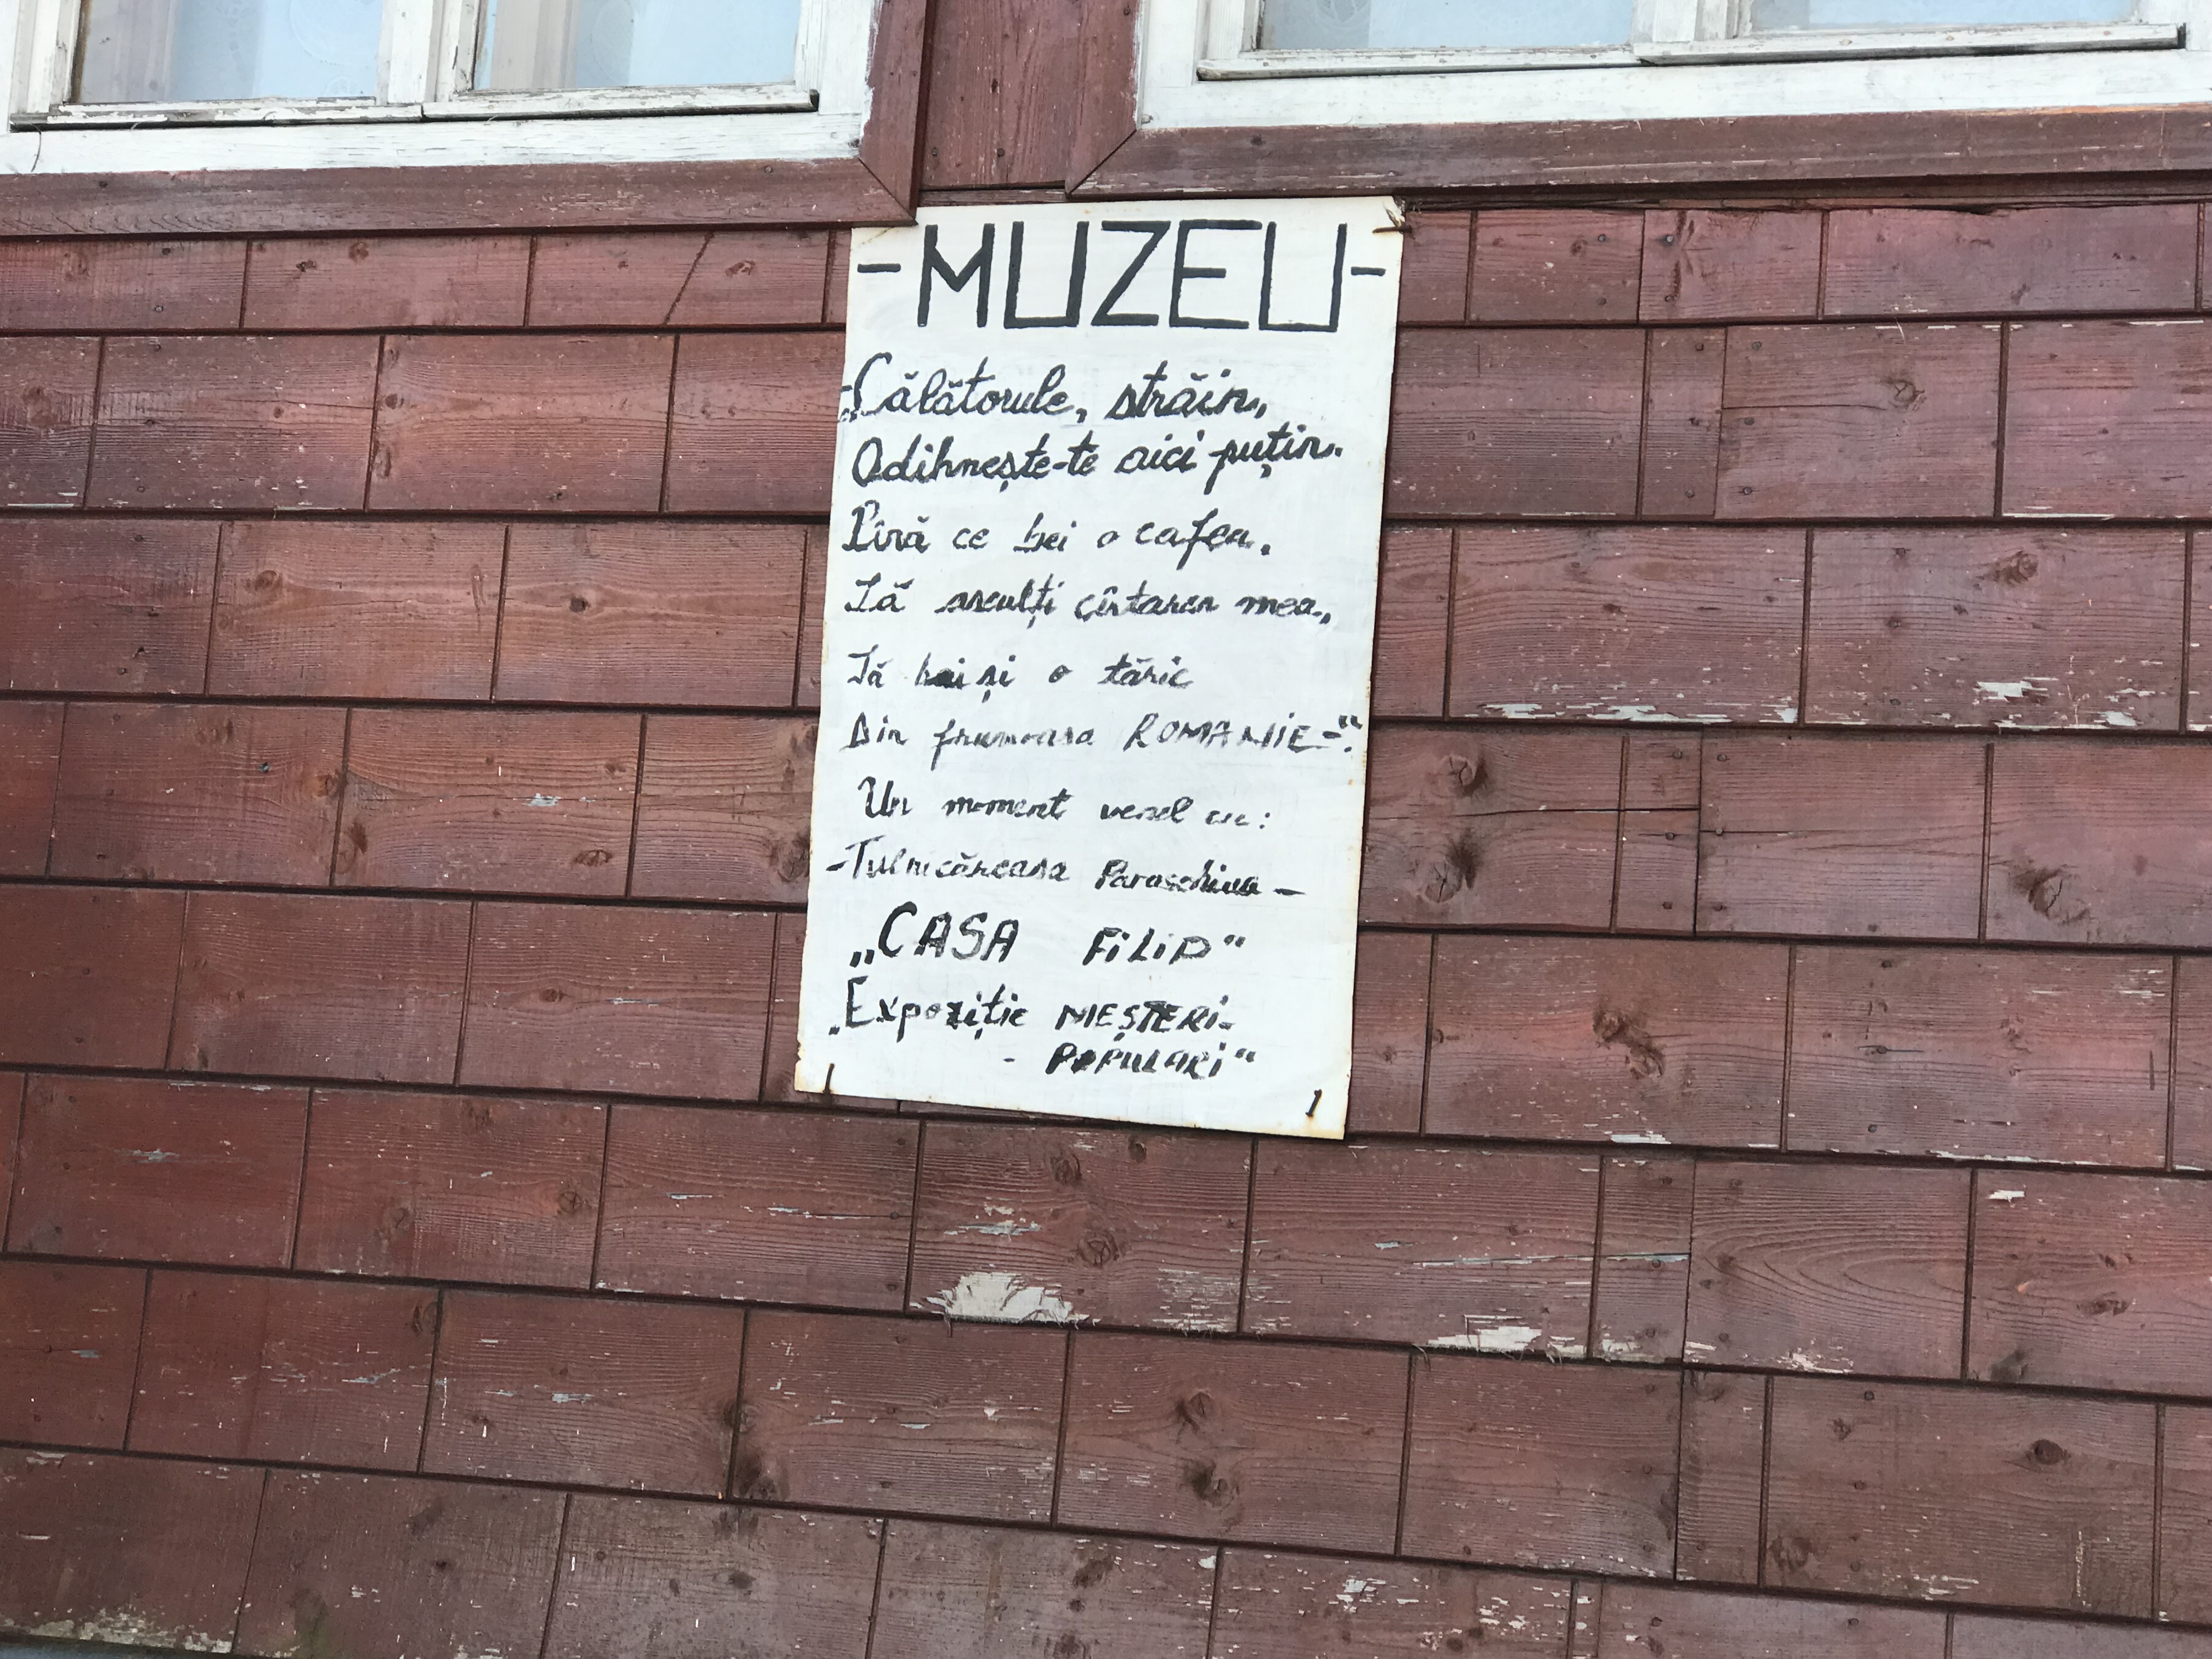 -MUZEU-
„Călătorule, străin,
Odihnește-te aici puțin.
Pînă ce bei o cafea,
Să asculți cîntarea mea,
Să bei și o tăric
Din frumoasa ROMANIE-".
Un moment vesel cu:
-Tulnicăreasa Paraschiva-
„CASA FiLiP"
„Expoziție MEȘTERi-
- POPULARi"